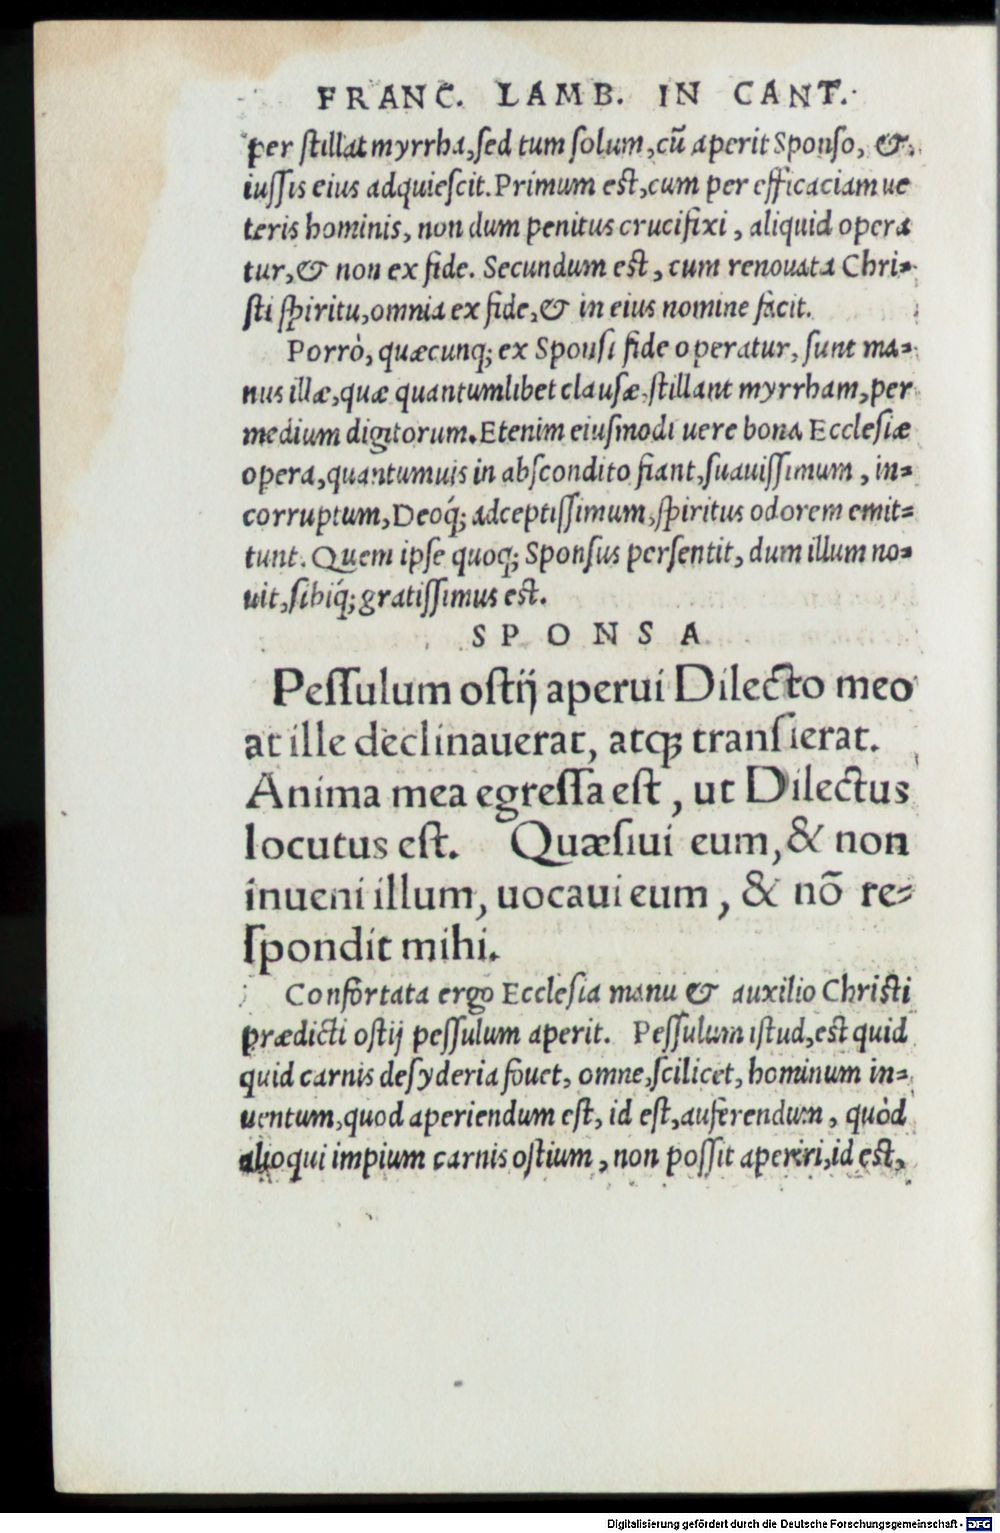 FRANC. LAMB. IN CANT.
per ſtillat myrrha, ſed tum ſolum, cũ aperit Sponſo, &
iuſſis eius adquieſcit. Primum eſt, cum per efficaciam ue
teris hominis, non dum penitus crucifixi, aliquid opera
tur, & non ex fide. Secundum eſt, cum renouata Chri-
ſti ſpiritu, omnia ex fide, & in eius nomine facit.
Porrò, quæcunq; ex Sponſi fide operatur, ſunt ma-
nus illæ, quæ quantumlibet clauſæ, ſtillant myrrham, per
medium digitorum. Etenim eiuſmodi uere bona Eccleſiæ
opera, quantumuis in abſcondito fiant, ſuauiſſimum, in-
corruptum, Deoq́; adceptiſſimum, ſpiritus odorem emit-
tunt. Quem ipſe quoq; Sponſus perſentit, dum illum no-
uit, ſibiq́; gratiſſimus eſt.
SPONSA
Peſſulum oſtij aperui Dilecto meo
at ille declinauerat, atq; tranſierat.
Anima mea egreſſa eſt, ut Dilectus
locutus eſt. Quæſiui eum, & non
inueni illum, uocaui eum, & nõ re-
ſpondit mihi.
Confortata ergo Eccleſia manu & auxilio Chriſti
prædicti oſtij peſſulum aperit. Peſſulum iſtud, eſt quid
quid carnis deſyderia fouet, omne, ſcilicet, hominum in-
uentum, quod aperiendum eſt, id eſt, auferendum, quòd
alioqui impium carnis oſtium, non poſſit aperiri, id eſt,
Digitalisierung gefördert durch die Deutsche Forschungsgemeinschaft - DFG